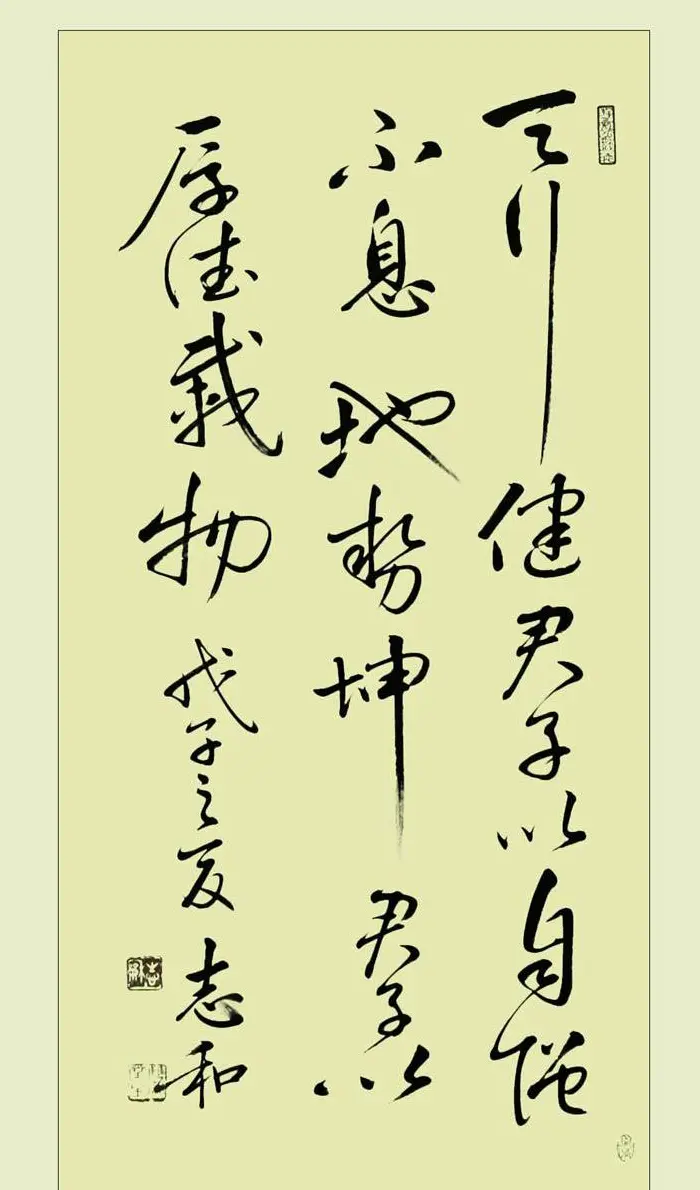 天行健君子以自强
不息地势坤君子以
厚德载物戊子之夏志和